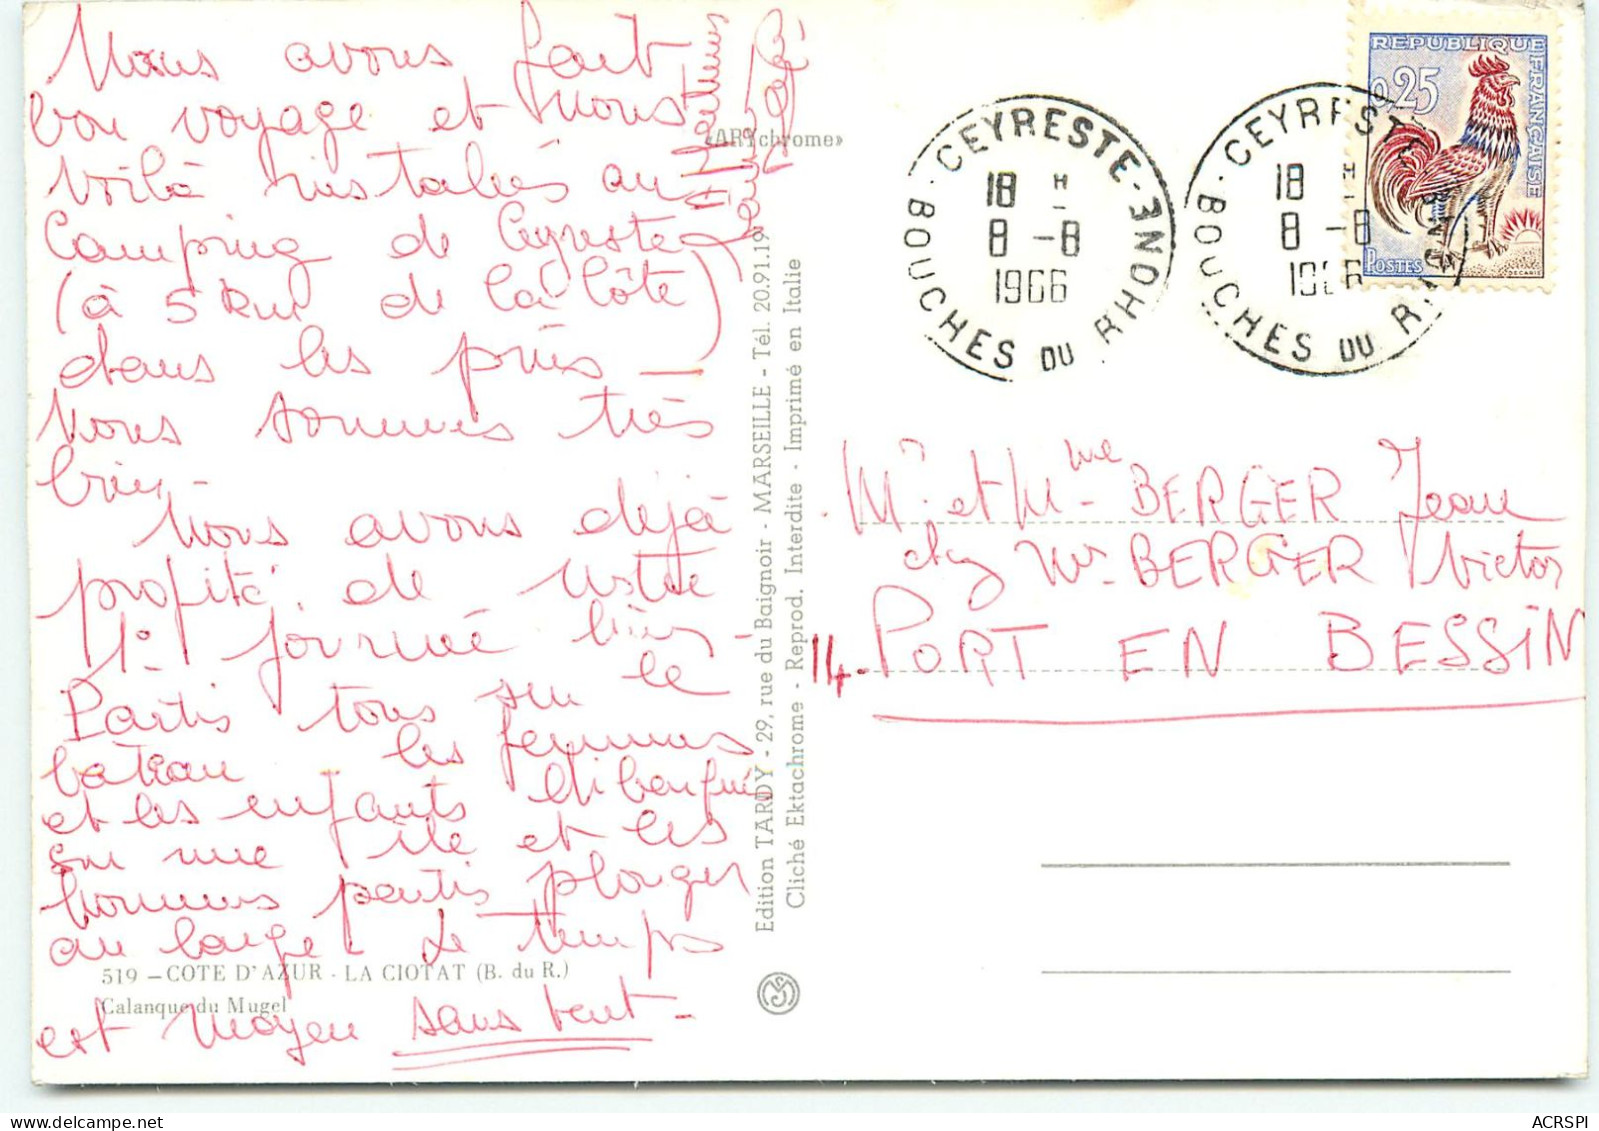 Nous avons fait
bon voyage et nous
voilà installés au
Camping de Ceyreste
(à 5 km de la Côte)
dans les prés —
Nous sommes très
bien -
Nous avons déjà
profité de notre
1º journée hier -
Partis tous sur le
bateau les femmes
et les enfants débarqués
sur une île et les
hommes partis plonger
au large. Le temps
est moyen sans vent -
«ARYchrome»
Edition TARDY - 29, rue du Baignoir - MARSEILLE - Tél. 20.91.19
Cliché Ektachrome - Reprod. Interdite - Imprimé en Italie
519 - COTE D'AZUR - LA CIOTAT (B. du R.)
Calanque du Mugel
CEYRESTE-
18 H
8 -8
1966
BOUCHES DU RHONE
CEYRESTE
18 H
8 -8
1966
BOUCHES DU R
REPUBLIQUE FRANÇAISE
0,25
POSTES
DECARIS
Mr et Mme BERGER Jean
chez Mr BERGER Victor
14 - PORT EN BESSIN
ACRSPI